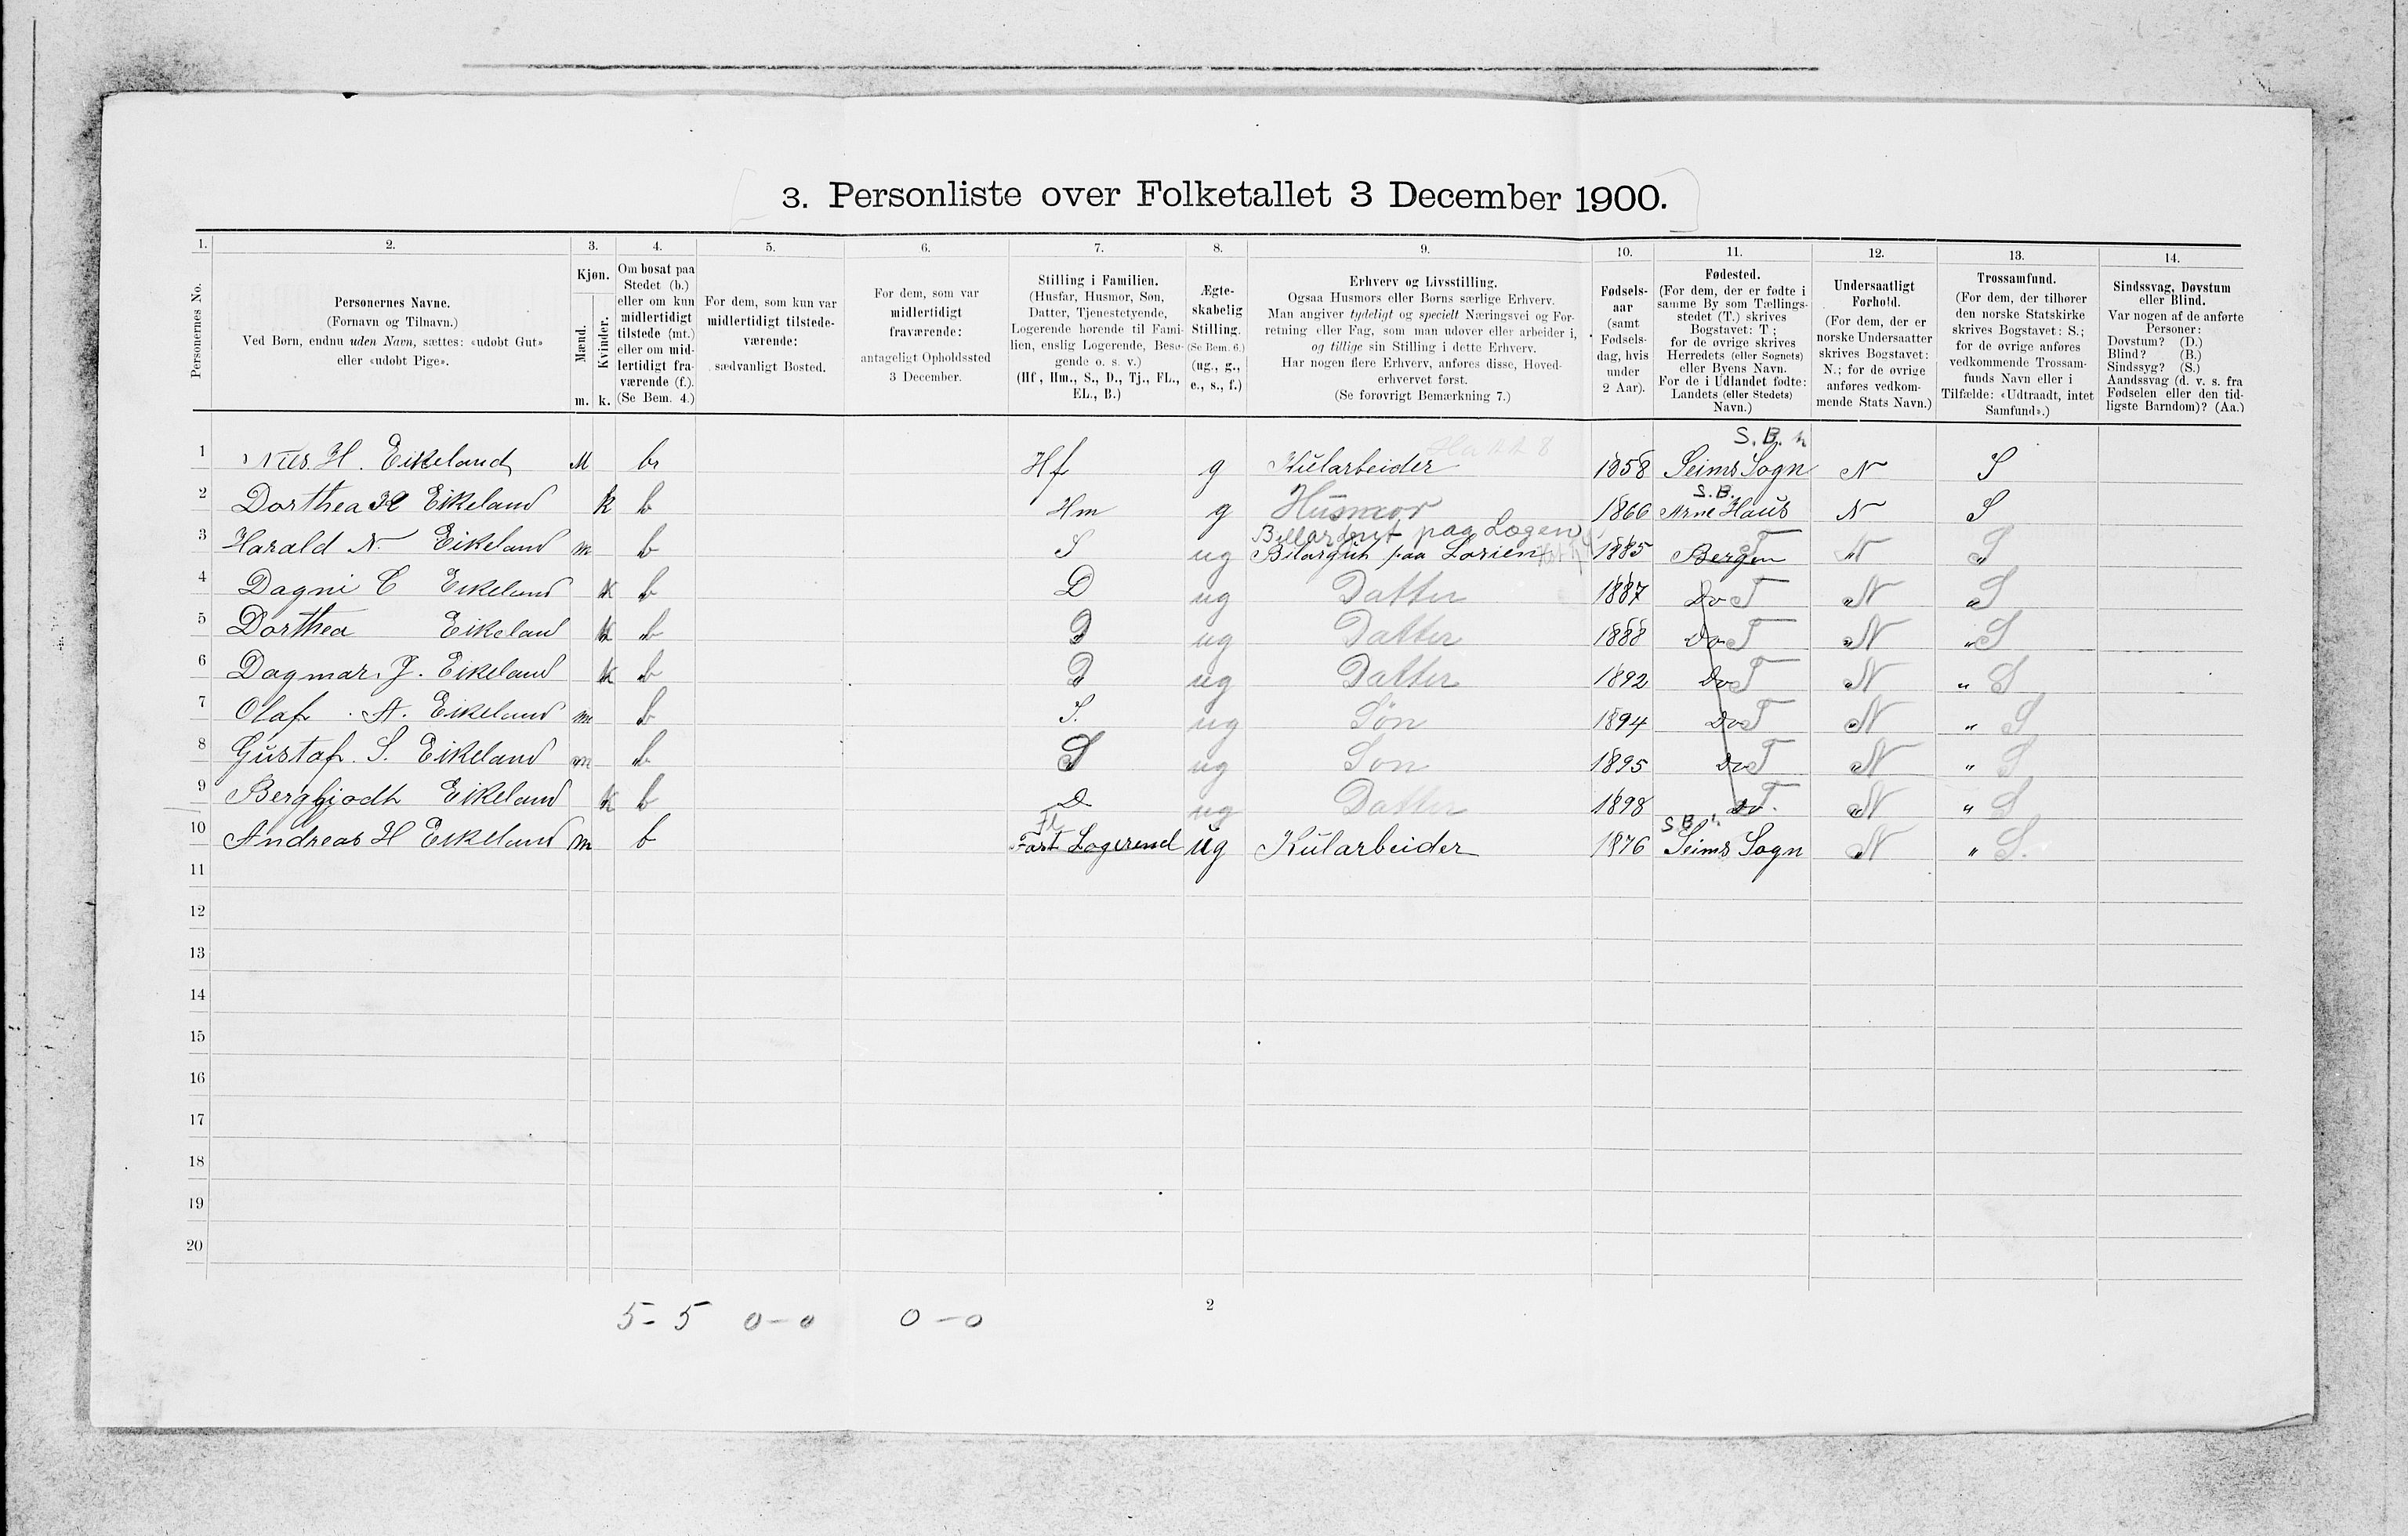 3. Personliste over Folketallet 3 December 1900.
1. 2. 3. 4. 5. 6. 7. 8. 9. 10. 11. 12. 13. 14.
Personernes No.
Personernes Navne.
(Fornavn og Tilnavn.)
Ved Børn, endnu uden Navn, sættes: «udøbt Gut»
eller «udøbt Pige».
Kjøn.
Mænd.
Kvinder.
m. k.
Om bosat paa
Stedet (b.)
eller om kun
midlertidigt
tilstede (mt.)
eller om mid-
lertidigt fra-
værende (f.).
(Se Bem. 4.)
For dem, som kun var
midlertidigt tilstede-
værende:
sædvanligt Bosted.
For dem, som var
midlertidigt
fraværende:
antageligt Opholdssted
3 December.
Stilling i Familien.
(Husfar, Husmor, Søn,
Datter, Tjenestetyende,
Logerende hørende til Fami-
lien, enslig Logerende, Besø-
gende o. s. v.)
(Hf, Hm., S., D., Tj., FL.,
EL., B.)
Ægte-
skabelig
Stilling.
(Se Bem. 6.)
(ug., g.,
e., s., f.)
Erhverv og Livsstilling.
Ogsaa Husmors eller Børns særlige Erhverv.
Man angiver tydeligt og specielt Næringsvei og For-
retning eller Fag, som man udøver eller arbeider i,
og tillige sin Stilling i dette Erhverv.
Har nogen flere Erhverv, anføres disse, Hoved-
erhvervet først.
(Se forøvrigt Bemærkning 7.)
Fødsels-
aar
(samt
Fødsels-
dag, hvis
under
2 Aar).
Fødested.
(For dem, der er fødte i
samme By som Tællings-
stedet (T.) skrives
Bogstavet: T;
for de øvrige skrives
Herredets (eller Sognets)
eller Byens Navn.
For de i Udlandet fødte:
Landets (eller Stedets)
Navn.)
Undersaatligt
Forhold.
(For dem, der er
norske Undersaatter
skrives Bogstavet:
N.; for de øvrige
anføres vedkom-
mende Stats Navn.)
Trossamfund.
(For dem, der tilhører
den norske Statskirke
skrives Bogstavet: S.;
for de øvrige anføres
vedkommende Trossam-
funds Navn eller i
Tilfælde: «Udtraadt, intet
Samfund».)
Sindssvag, Døvstum
eller Blind.
Var nogen af de anførte
Personer:
Døvstum? (D.)
Blind? (B.)
Sindssyg? (S.)
Aandssvag (d. v. s. fra
Fødselen eller den tid-
ligste Barndom)? (Aa.)
S. B.
1 Nils. H. Eikeland M b Hf g Kularbeider 1858 Seims Sogn N S
S. B.
2 Dorthea H Eikeland k b Hm g Husmor 1866 Arne Haus N S
Billardgut paa Logen
3 Harald N. Eikeland m b S ug Bilargut paa Lorien 1885 Bergen T N " S
4 Dagni C Eikeland k b D ug Datter 1887 Do T N " S
5 Dorthea Eikeland k b D ug Datter 1888 Do T N " S
6 Dagmar. J. Eikeland k b D ug Datter 1892 Do T N " S
7 Olaf . A. Eikeland m b S. ug Søn 1894 Do T N " S
8 Gustaf. S. Eikeland m b S ug Søn 1895 Do T N " S
9 Bergljodh Eikeland k b D ug Datter 1898 Do T. N " S
Fl S B
10 Andreas H Eikeland m b Fast Logerend ug Kularbeider 1876 Seims Sogn N " S.
11
12
13
14
15
16
17
18
19
20
5 - 5 0 - 0 0 - 0
2